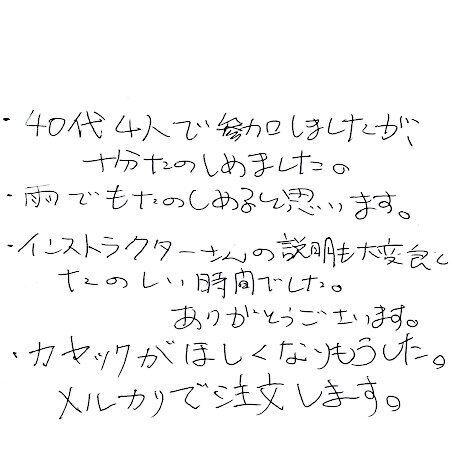 ・40代4人で参加しましたが、
十分たのしめました。
・雨でもたのしめると思います。
・インストラクターさんの説明も大変良く
たのしい時間でした。
ありがとうございます。
・カヤックがほしくなりもうした。
メルカリで注文します。